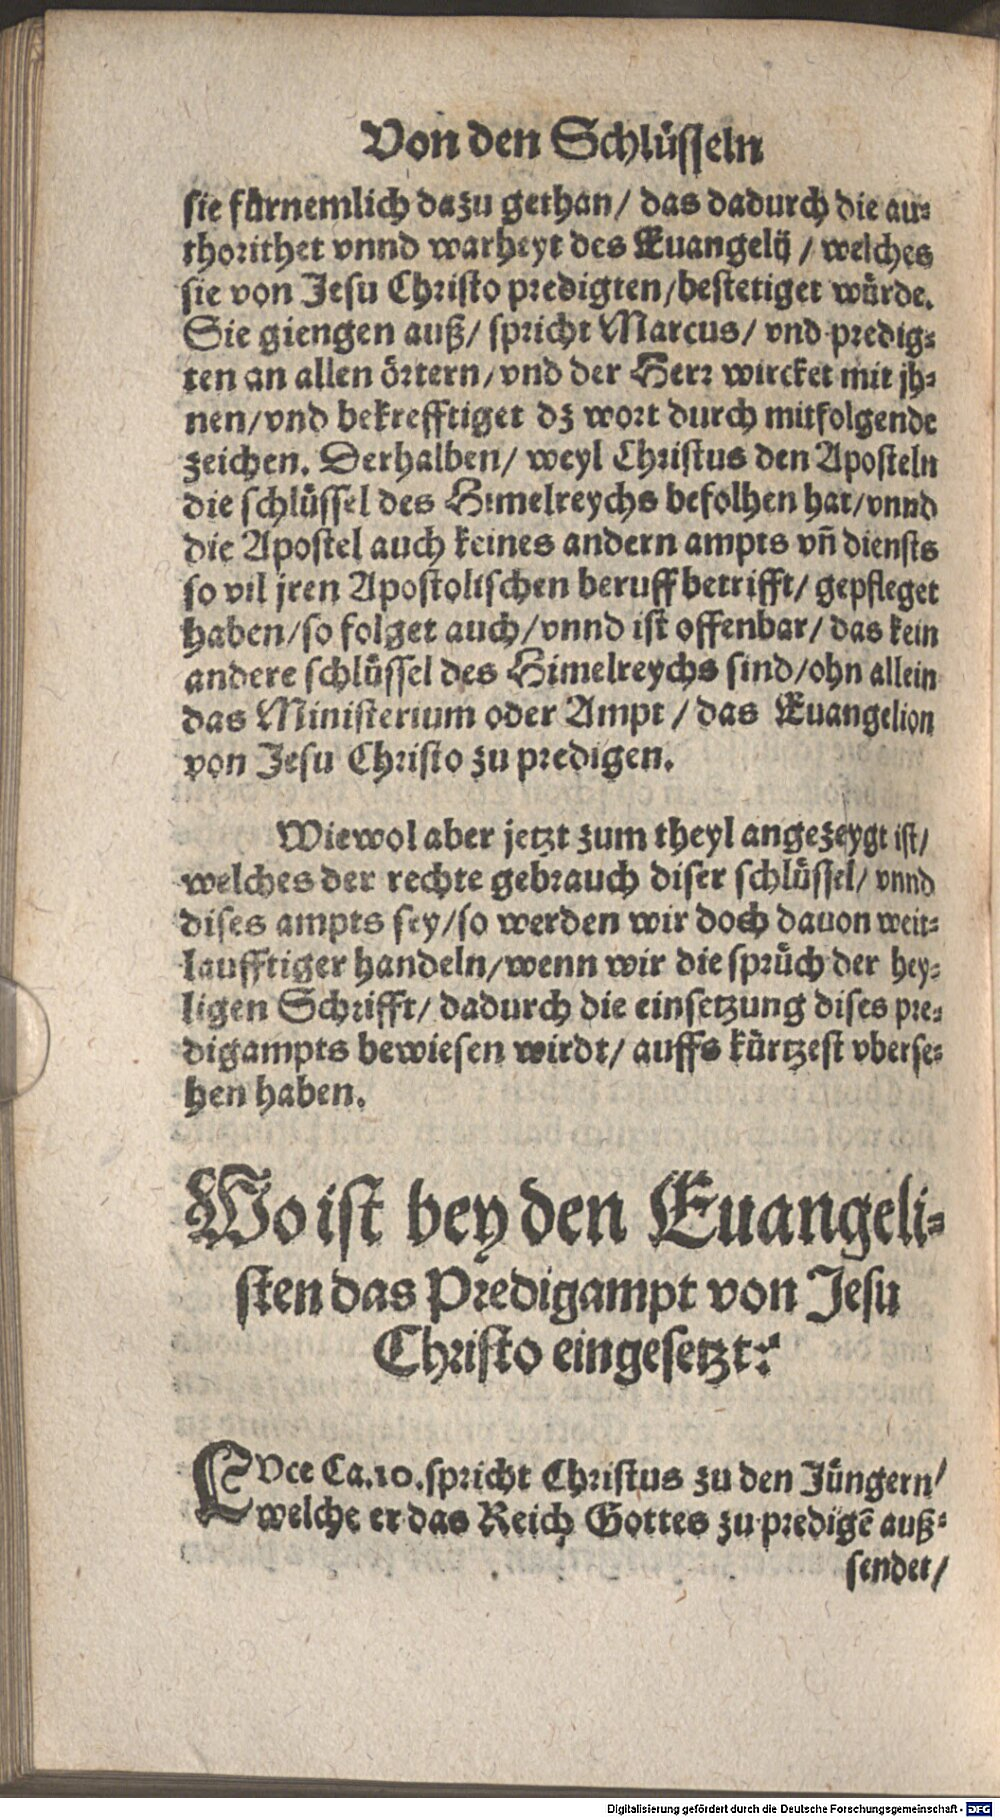 Von den Schlüsseln
sie fürnemlich dazu gethan/ das dadurch die au⸗
thorithet vnnd warheyt des Euangelij / welches
sie von Jesu Christo predigten/bestetiget würde.
Sie giengen auß/ spricht Marcus/ vnd predig⸗
ten an allen örtern/vnd der Herr wircket mit jh⸗
nen/vnd bekrefftiget dz wort durch mitfolgende
zeichen. Derhalben/ weyl Christus den Aposteln
die schlüssel des Himelreychs befolhen hat/vnnd
die Apostel auch keines andern ampts vn̄ diensts
so vil jren Apostolischen beruff betrifft/ gepfleget
haben/so folget auch/vnnd ist offenbar/ das kein
andere schlüssel des Himelreychs sind/ohn allein
das Ministerium oder Ampt / das Euangelion
von Jesu Christo zu predigen.
Wiewol aber jetzt zum theyl angezeygt ist/
welches der rechte gebrauch diser schlüssel/ vnnd
dises ampts sey/so werden wir doch dauon weit⸗
laufftiger handeln/wenn wir die sprüch der hey⸗
ligen Schrifft/ dadurch die einsetzung dises pre⸗
digampts bewiesen wirdt/ auffs kürtzest vberse⸗
hen haben.
Wo ist bey den Euangeli⸗
sten das Predigampt von Jesu
Christo eingesetzt?
LVce Ca.10.spricht Christus zu den Jüngern/
welche er das Reich Gottes zu predigē auß⸗
sendet/
Digitalisierung gefördert durch die Deutsche Forschungsgemeinschaft - DFG